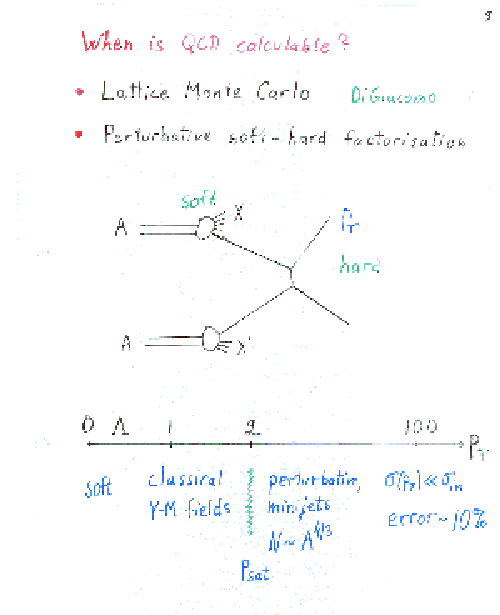 When is QCD calculable?
• Lattice Monte Carlo DiGiacomo
• Perturbative soft-hard factorisation
soft
A X
p_T
hard
A X
0 Λ 1 2 100 p_T
soft classical perturbative, σ(p_T)≪σ_in
Y-M fields minijets error~10%
N~A^4/3
p_sat